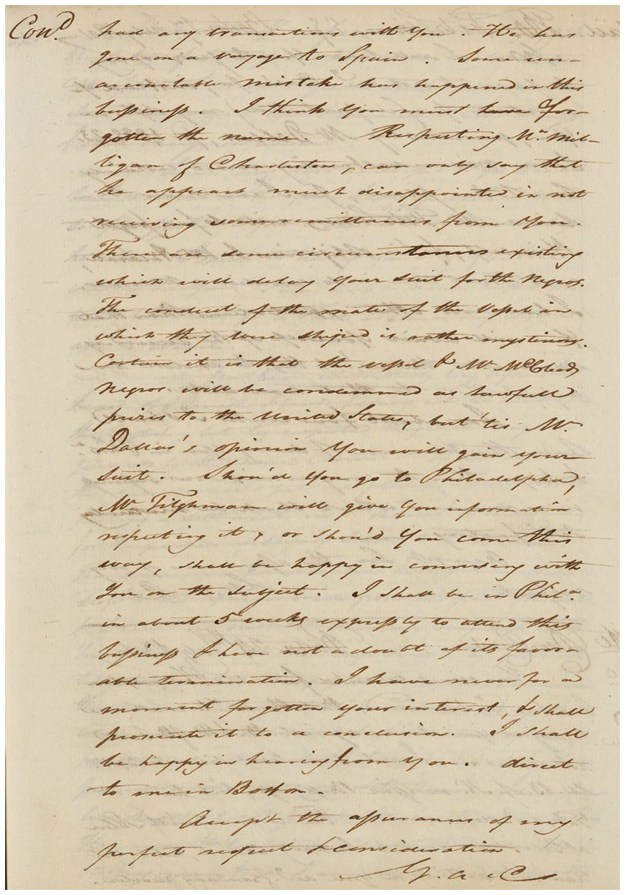 Con.d had any transactions with You. He has
gone on a voyage to Spain. Some un-
accountable mistake has happened in this
bussiness. I think You must have for-
gotten the name. Respecting Mr. Mil-
ligan of Charleston, can only say that
he appears much disappointed in not
receiving some remittances from You.
There are some circumstances existing
which will delay Your suit for the Negros.
The conduct of the mate of the Vessel in
which they were shiped is rather mysterious.
Certain it is that the vessel & Mr.
Negros will be condemned as lawfull
prizes to the United States, but 'tis Mr.
Dallas's opinion You will gain your
suit. Shou'd You go to Philadelphia,
Mr Tilghman will give You information
respecting it, or shou'd You come this
way, shall be happy in conversing with
You on the subject. I shall be in Phila
in about 5 weeks expressly to attend this
bussiness & have not a doubt of its favor-
able termination. I have never for a
moment forgotten your interest, & shall
prosecute it to a conclusion. I shall
be happy in hearing from You. direct
to me in Boston.
Accept the assurances of my
perfect respect & consideration